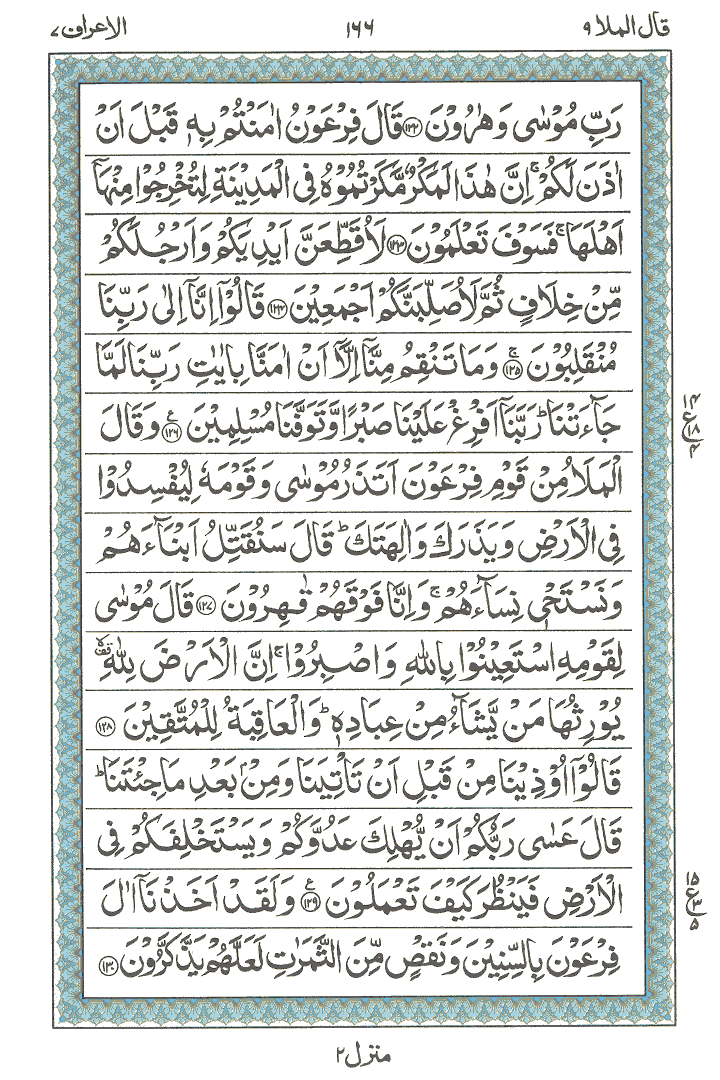 قال الملا ٩ ١٦٦ الاعراف ٧
رَبِّ مُوْسٰى وَهٰرُوْنَ ﴿١٢٢﴾ قَالَ فِرْعَوْنُ اٰمَنْتُمْ بِهٖ قَبْلَ اَنْ
اٰذَنَ لَكُمْ ۚ اِنَّ هٰذَا لَمَكْرٌ مَّكَرْتُمُوْهُ فِى الْمَدِيْنَةِ لِتُخْرِجُوْا مِنْهَاۤ
اَهْلَهَا ۚ فَسَوْفَ تَعْلَمُوْنَ ﴿١٢٣﴾ لَاُقَطِّعَنَّ اَيْدِيَكُمْ وَاَرْجُلَكُمْ
مِّنْ خِلَافٍ ثُمَّ لَاُصَلِّبَنَّكُمْ اَجْمَعِيْنَ ﴿١٢٤﴾ قَالُوْۤا اِنَّاۤ اِلٰى رَبِّنَا
مُنْقَلِبُوْنَ ۚ ﴿١٢٥﴾ وَمَا تَنْقِمُ مِنَّاۤ اِلَّاۤ اَنْ اٰمَنَّا بِاٰيٰتِ رَبِّنَا لَمَّا
جَآءَتْنَا ؕ رَبَّنَاۤ اَفْرِغْ عَلَيْنَا صَبْرًا وَّتَوَفَّنَا مُسْلِمِيْنَ ﴿١٢٦﴾ ع وَقَالَ
١٤
ع
١٨
٤
الْمَلَاُ مِنْ قَوْمِ فِرْعَوْنَ اَتَذَرُ مُوْسٰى وَقَوْمَهٗ لِيُفْسِدُوْا
فِى الْاَرْضِ وَيَذَرَكَ وَاٰلِهَتَكَ ؕ قَالَ سَنُقَتِّلُ اَبْنَآءَهُمْ
وَنَسْتَحْىٖ نِسَآءَهُمْ ۚ وَاِنَّا فَوْقَهُمْ قٰهِرُوْنَ ﴿١٢٧﴾ قَالَ مُوْسٰى
لِقَوْمِهِ اسْتَعِيْنُوْا بِاللّٰهِ وَاصْبِرُوْا ۚ اِنَّ الْاَرْضَ لِلّٰهِ ۙ
يُوْرِثُهَا مَنْ يَّشَآءُ مِنْ عِبَادِهٖ ؕ وَالْعَاقِبَةُ لِلْمُتَّقِيْنَ ﴿١٢٨﴾
قَالُوْۤا اُوْذِيْنَا مِنْ قَبْلِ اَنْ تَاْتِيَنَا وَمِنْۢ بَعْدِ مَا جِئْتَنَا ؕ
قَالَ عَسٰى رَبُّكُمْ اَنْ يُّهْلِكَ عَدُوَّكُمْ وَيَسْتَخْلِفَكُمْ فِى
الْاَرْضِ فَيَنْظُرَ كَيْفَ تَعْمَلُوْنَ ﴿١٢٩﴾ ع وَلَقَدْ اَخَذْنَاۤ اٰلَ
١٥
ع
٣
٥
فِرْعَوْنَ بِالسِّنِيْنَ وَنَقْصٍ مِّنَ الثَّمَرٰتِ لَعَلَّهُمْ يَذَّكَّرُوْنَ ﴿١٣٠﴾
منزل ٢